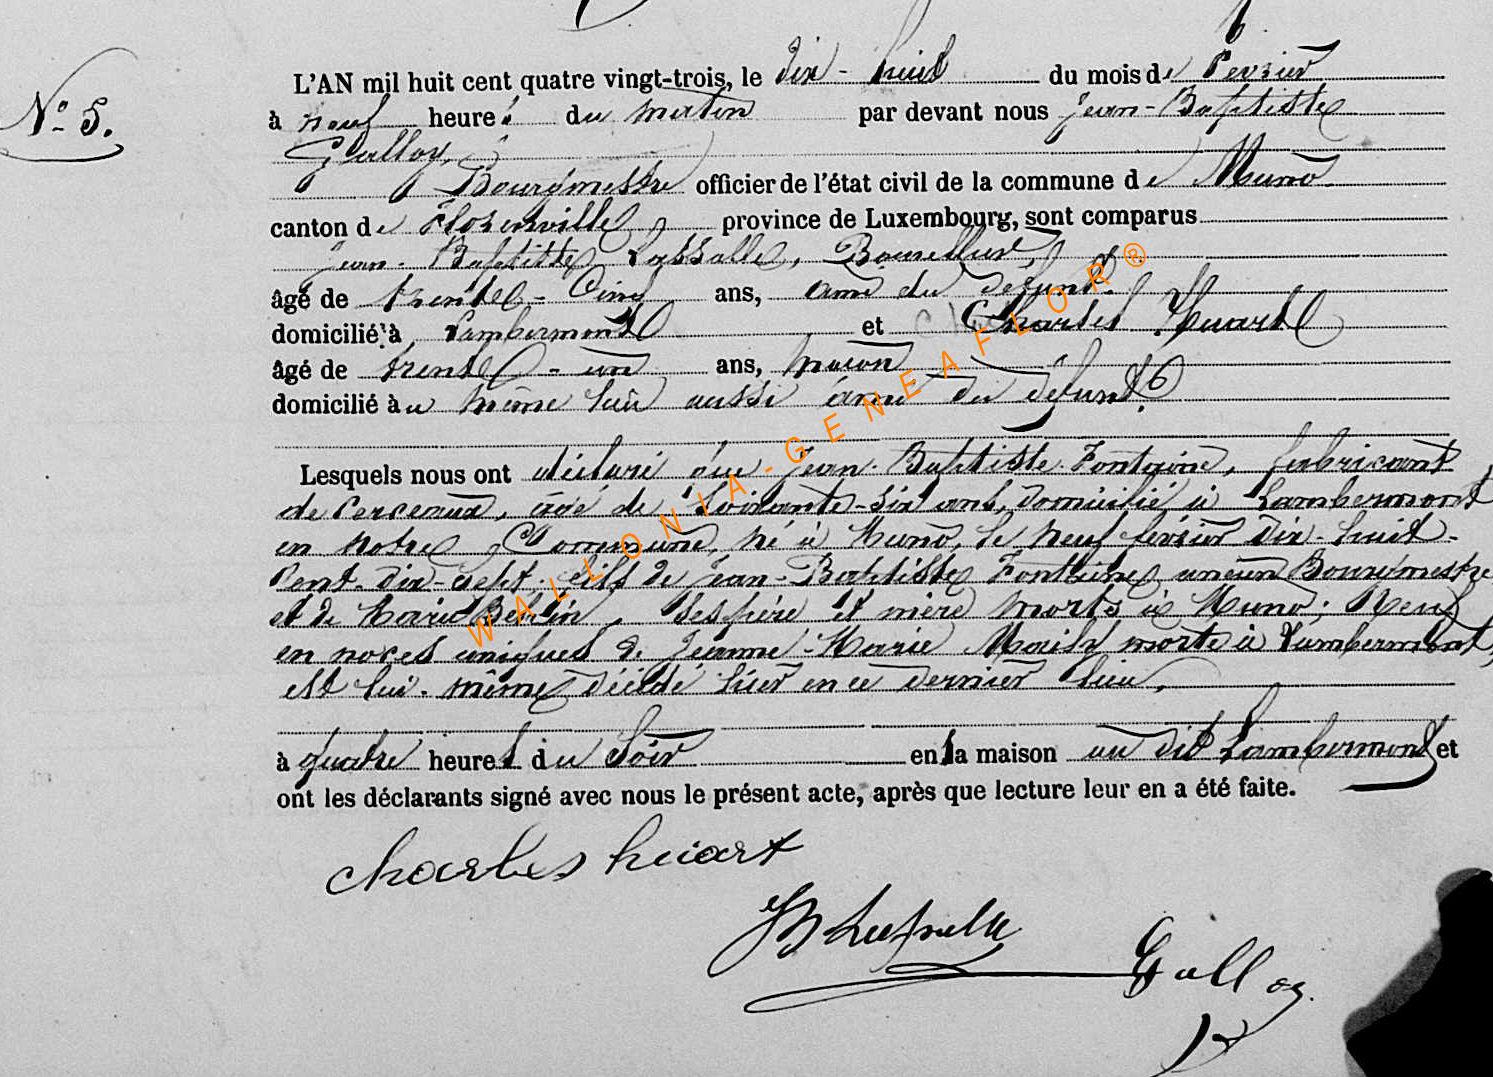 N° 5.
L'AN mil huit cent quatre vingt-trois, le dix-huit du mois de fevrier
à neuf heures du matin par devant nous Jean-Baptiste
Galloy,
Bourgmestre officier de l'état civil de la commune de Muno
canton de Florenville province de Luxembourg, sont comparus
Jean-Baptiste Lassalle, Bourrelier,
âgé de trente-cinq ans, ami du défunt
domicilié à Lambermont et Charles Huart
âgé de trente-un ans, maçon
domicilié au même lieu aussi ami du défunt.
Lesquels nous ont déclaré que Jean-Baptiste Fontaine, fabricant
de cerceaux, âgé de soixante-six ans, domicilié à Lambermont
en notre Commune, né à Muno, le neuf février dix-huit-
cent-dix-sept. fils de Jean-Baptiste Fontaine, ancien Bourgmestre
et de Marie Bertin, ses père et mère morts à Muno; Veuf
en noces uniques de Jeanne-Marie morte à Lambermont,
est lui-même décédé hier en ce dernier lieu,
à quatre heures du soir en sa maison au dit Lambermont et
ont les déclarants signé avec nous le présent acte, après que lecture leur en a été faite.
charles huart
Galloy
WALLONIA-GENEAFLOR®